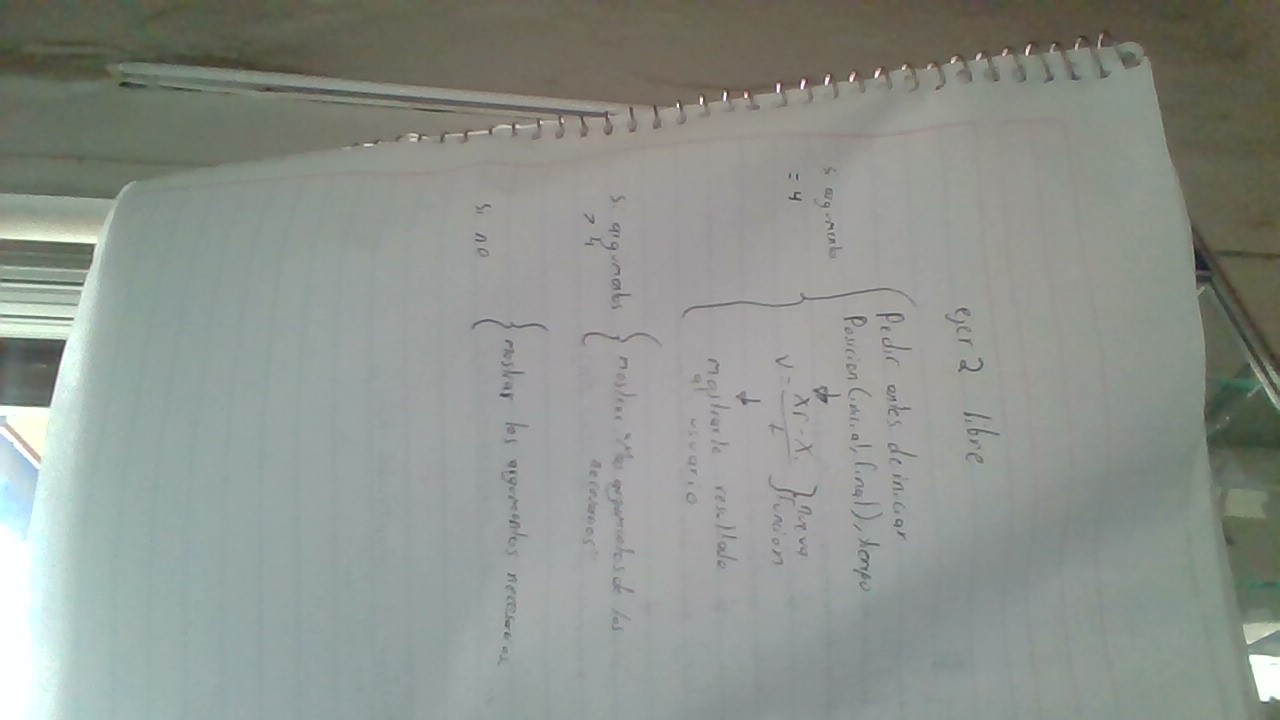 ejer 2 libre
Pedir antes de iniciar
Posicion (inicial, final), tiempo
si argumento
= 4
V = xf - xi
t
nueva
funcion
mostrarle resultado
al usuario
si argumentos
> 4
mostrar argumentos de los
necesarios
si no
mostrar los argumentos necesarios